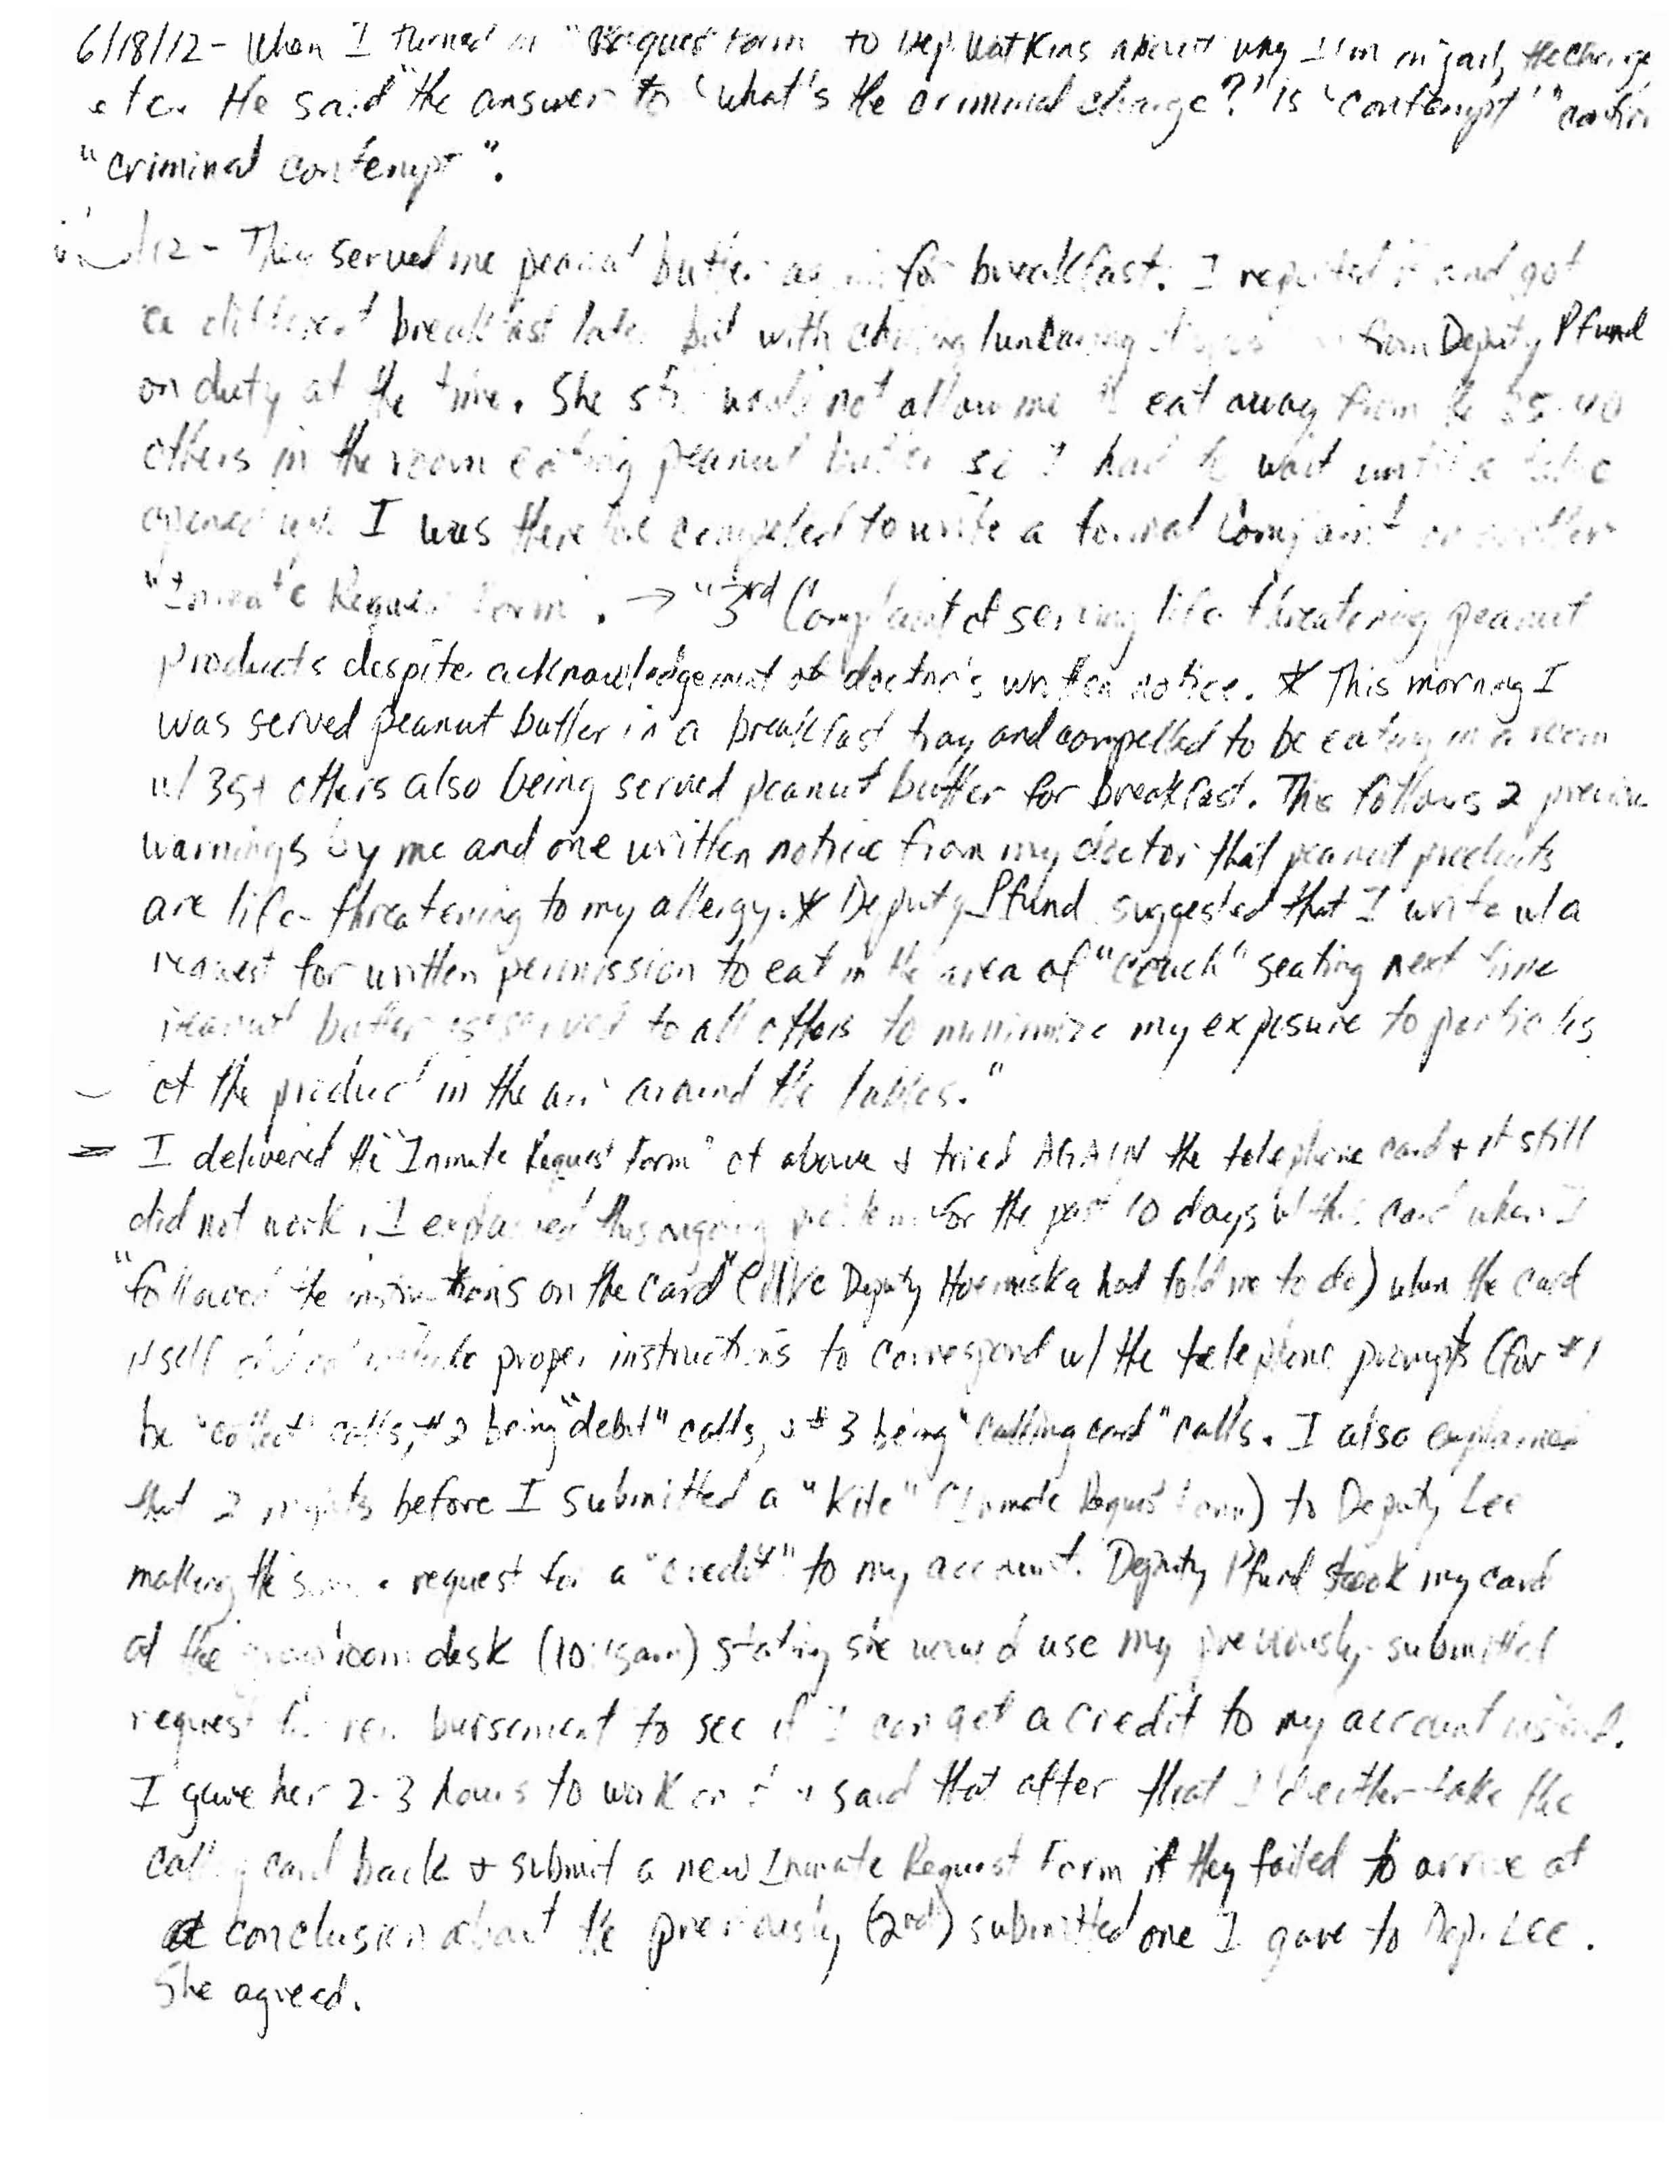 6/18/12 - When I turned in "Request Form to Dep. Watkins about why I'm in jail, the charge,
etc. He said "the answer to 'what's the criminal charge?' is 'contempt'"
"criminal contempt".
/12 - They served me peanut butter again for breakfast. I reported it and got
a different breakfast later but with from Deputy Pfund
on duty at the time. She still would not allow me to eat away from the 35-40
others in the room eating peanut butter so I had to wait until a table
opened up. I was therefore compelled to write a formal Complaint on another
"Inmate Request Form". → "3rd Complaint of serving life threatening peanut
products despite acknowledgement of doctor's written notice. * This morning I
was served peanut butter in a breakfast tray and compelled to be eating in a room
w/ 35+ others also being served peanut butter for breakfast. This follows 2 previous
warnings by me and one written notice from my doctor that peanut products
are life-threatening to my allergy. * Deputy Pfund suggested that I write w/ a
request for written permission to eat in the area of "couch" seating next time
peanut butter is served to all others to minimize my exposure to particles
of the product in the air around the tables."
= I delivered the "Inmate Request Form" of above & tried AGAIN the telephone card & it still
did not work. I explained this ongoing problem for the past 10 days w/ this card when I
"followed the instructions on the card" (like Deputy had told me to do) when the card
itself did not include proper instructions to correspond w/ the telephone prompts (for #1
be "collect" calls, #2 being "debit" calls, & #3 being "calling card" calls. I also explained
that 2 nights before I submitted a "Kite" (Inmate Request Form) to Deputy Lee
making the same request for a "credit" to my account. Deputy Pfund took my card
at the room desk (10:15am) stating she would use my previously-submitted
request for reimbursement to see if I can get a credit to my account instead.
I gave her 2-3 hours to work on it & said that after that I'd either take the
calling card back & submit a new Inmate Request Form if they failed to arrive at
a conclusion about the previously (2nd) submitted one I gave to Dep. Lee.
She agreed.